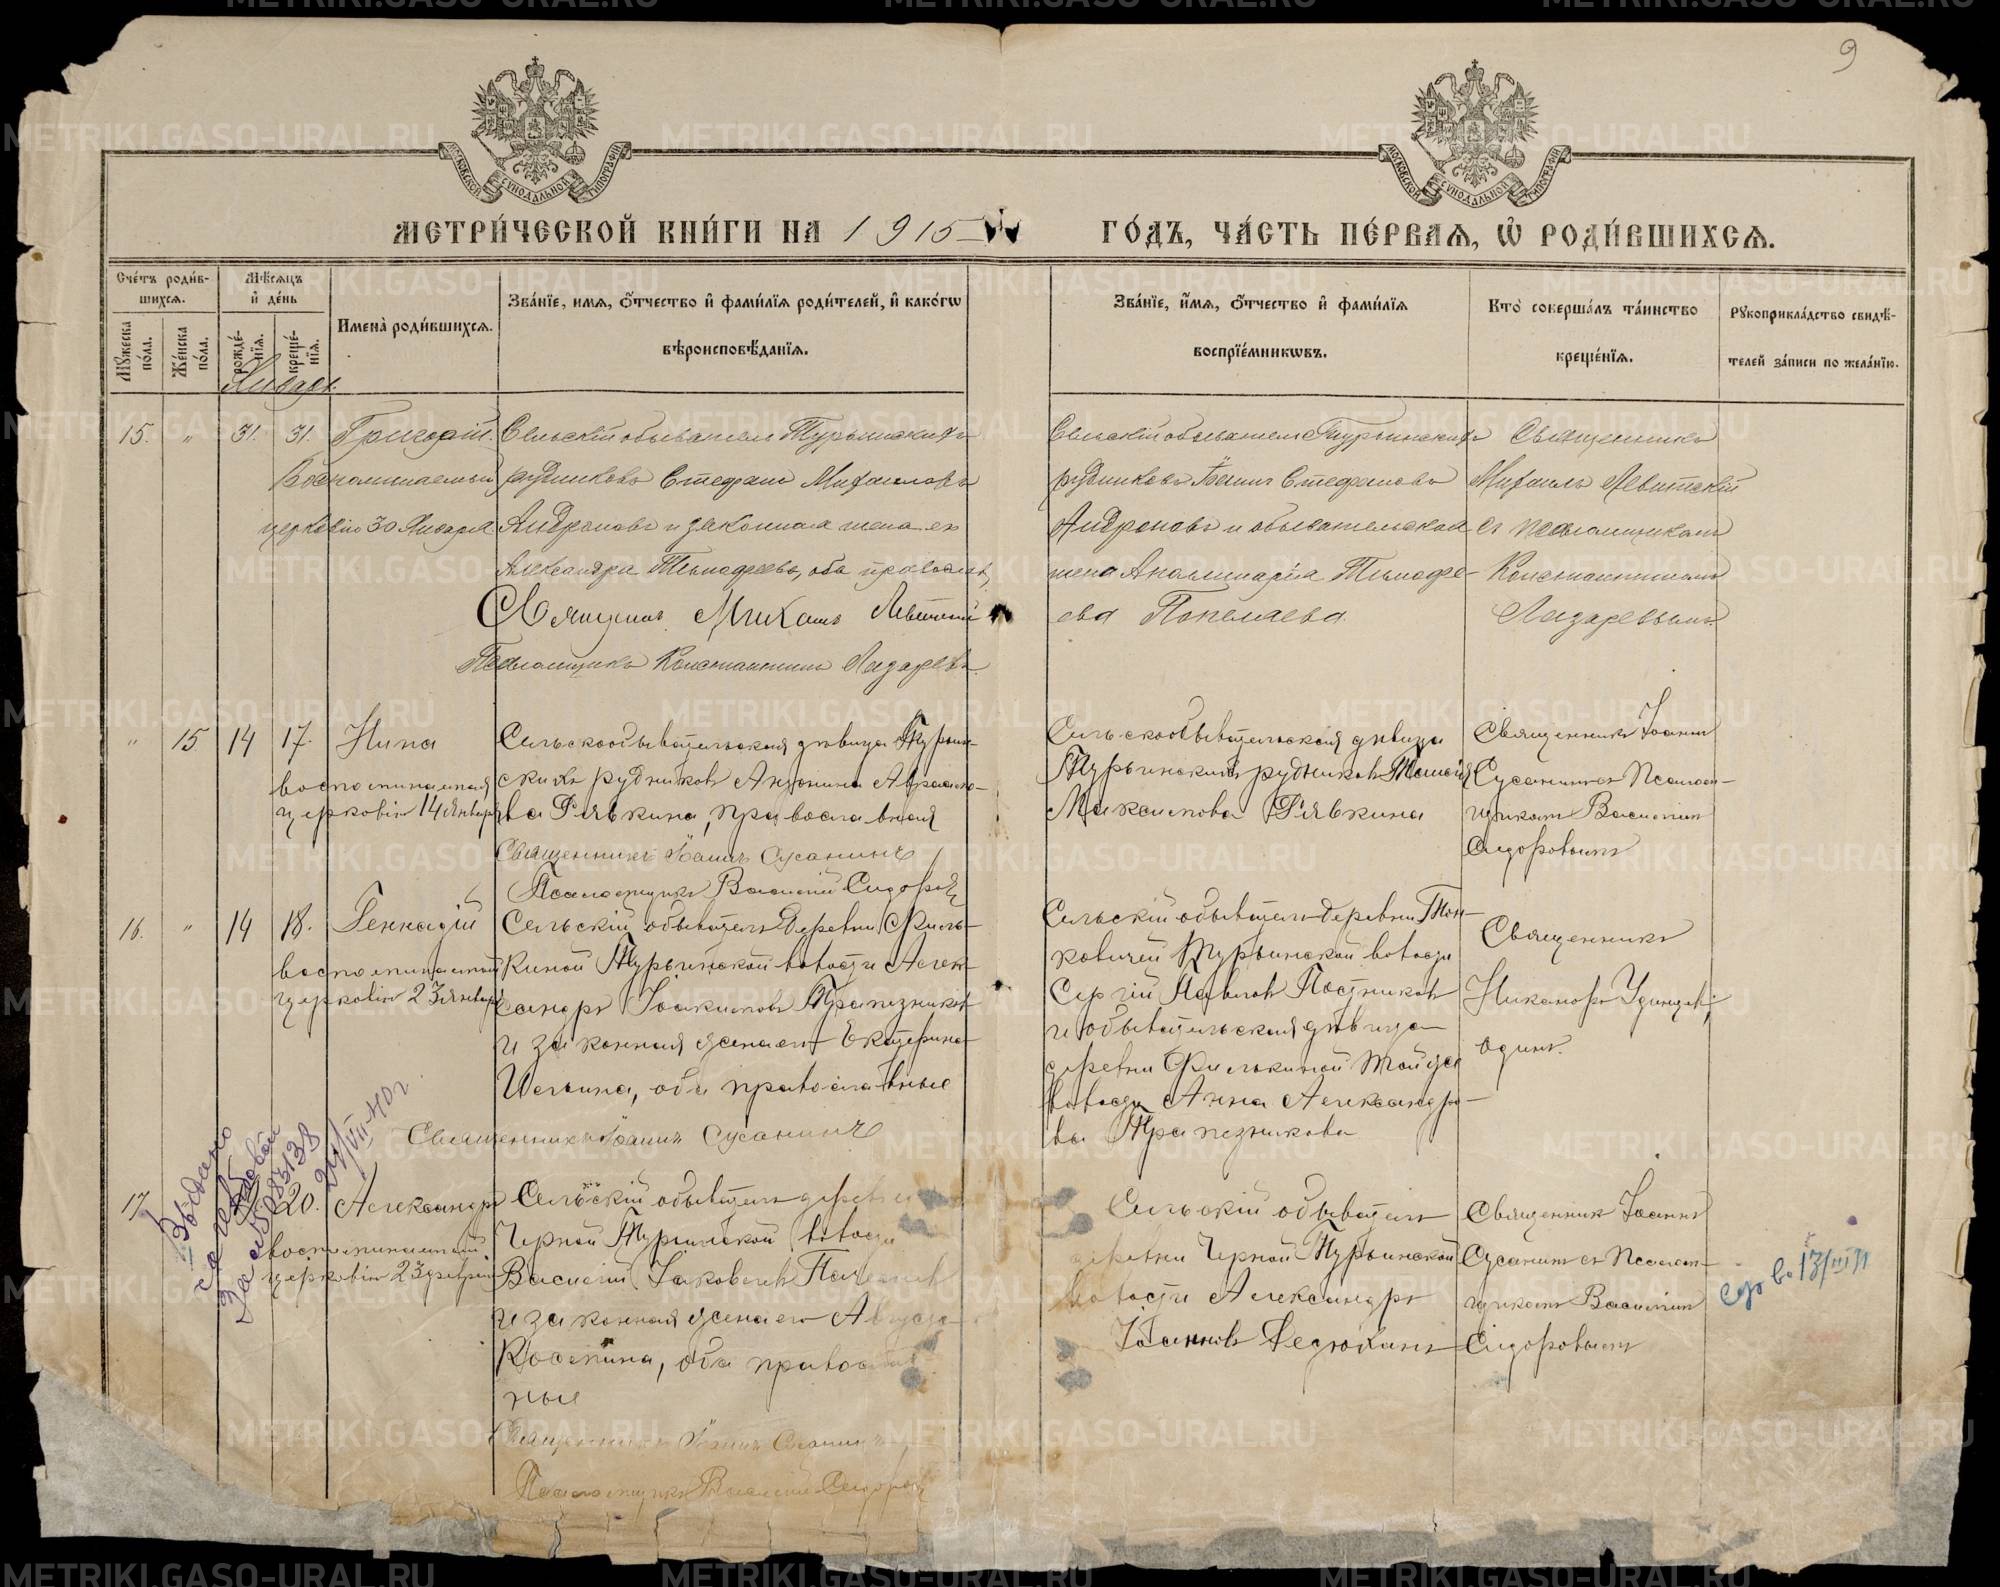 9
МОСКОВСКОЙ СѴНОДАЛЬНОЙ ТИПОГРАФІИ
МОСКОВСКОЙ СѴНОДАЛЬНОЙ ТИПОГРАФІИ
МЕТРИ́ЧЕСКОЙ КНИ́ГИ НА 1915
ГО́ДЪ, ЧА́СТЬ ПЕ́РВАѦ, Ѡ҆ РОДИ́ВШИХСѦ.
Сче́тъ роди́в-
шихсѧ.
Мꙋ́жеска по́ла.
Же́нска по́ла.
Мѣ́сѧцъ
и҆ де́нь
рожде́нїѧ.
креще́нїѧ.
Имена̀ роди́вшихсѧ.
Зва́нїе, и҆мѧ, ѻ҆́тчество и҆ фами́лїѧ роди́телей, и҆ како́гѡ
вѣроисповѣ́данїѧ.
Зва́нїе, и҆́мѧ, ѻ҆́тчество и҆ фами́лїѧ
воспрїе́мникѡвъ.
Кто̀ соверша́лъ та́инство
креще́нїѧ.
Рꙋкоприкла́дство свидѣ́-
телей за́писи по жела́нїю.
Январь.
15. " 31. 31. Григорій.
Воспоминаемый
церковію 30 Января
Сельскій обыватель Турьинскихъ
рудниковъ Стефанъ Михаиловъ
Андроновъ и законная жена его
Александра Тимофеева, оба правосл.
Священникъ Михаилъ Левитскій
Псаломщикъ Константинъ Лазаревъ.
Сельскій обыватель Турьинскихъ
рудниковъ Іоаннъ Стефановъ
Андроновъ и обывательская
жена Аполлинарія Тимофе-
ева Попеляева.
Священникъ
Михаилъ Левитскій
съ псаломщикомъ
Константиномъ
Лазаревымъ.
" 15 14 17. Нина
воспоминаемая
церковію 14 января
Сельскообывательская дѣвица Турьин-
скихъ рудниковъ Антонина Авраамо-
ва Рявкина, православная
Священникъ Іоаннъ Сусанинъ
Псаломщикъ Василій Сидоровъ
Сельскообывательская дѣвица
Турьинскихъ рудниковъ Таисія
Максимова Рявкина
Священникъ Іоаннъ
Сусанинъ съ Псалом-
щикомъ Василіемъ
Сидоровымъ
16. " 14 18. Геннадій
воспоминаемый
церковію 23 января
Сельскій обыватель деревни Филь-
киной Турьинской волости Алек-
сандръ Іоакимовъ Трапезниковъ
и законная жена его Екатерина
Ильина, оба православные
Священникъ Іоаннъ Сусанинъ
Сельскій обыватель деревни Тон-
ковичей Турьинской волости
Сергій Павловъ Постниковъ
и обывательская дѣвица
деревни Филькиной той же
волости Анна Александро-
ва Трапезникова
Священникъ
Никаноръ Удинцевъ,
одинъ.
Выдано
24/VIII-40г.
17. 20. Александръ
воспоминаемый
церковію 23 февраля
Сельскій обыватель деревни
Черной Турьинской волости
Василій Іаковлевъ
и законная жена его Августа
Косьмина, оба православ
ные
Священникъ Іоаннъ Сусанинъ
Псаломщикъ Василій Сидоровъ
Сельскій обыватель
деревни Черной Турьинской
волости Александръ
Іоанновъ Федюханъ
Священник Іоаннъ
Сусанинъ съ Псалом-
щикомъ Василіемъ
Сидоровымъ
METRIKI.GASO-URAL.RU